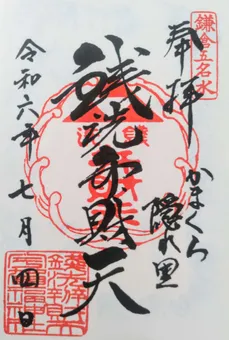 鎌倉五名水
奉拝
かまくら
隠れ里
銭洗弁財天
令和六年七月四日